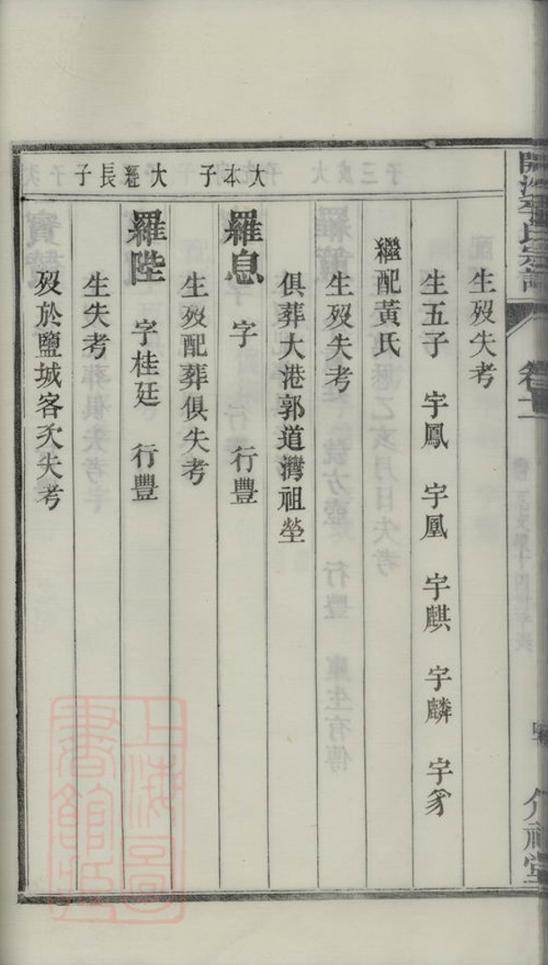 開沙李氏宗譜
生歿失考
生五子 宇鳳 宇凰 宇麒 宇麟 宇豸
繼配黃氏
生歿失考
俱葬大港郭道灣祖塋
大本子
羅息 字 行豐
生歿配葬俱失考
大經長子
羅陞 字桂廷 行豐
生失考
歿於鹽城客次失考
上海圖書館藏